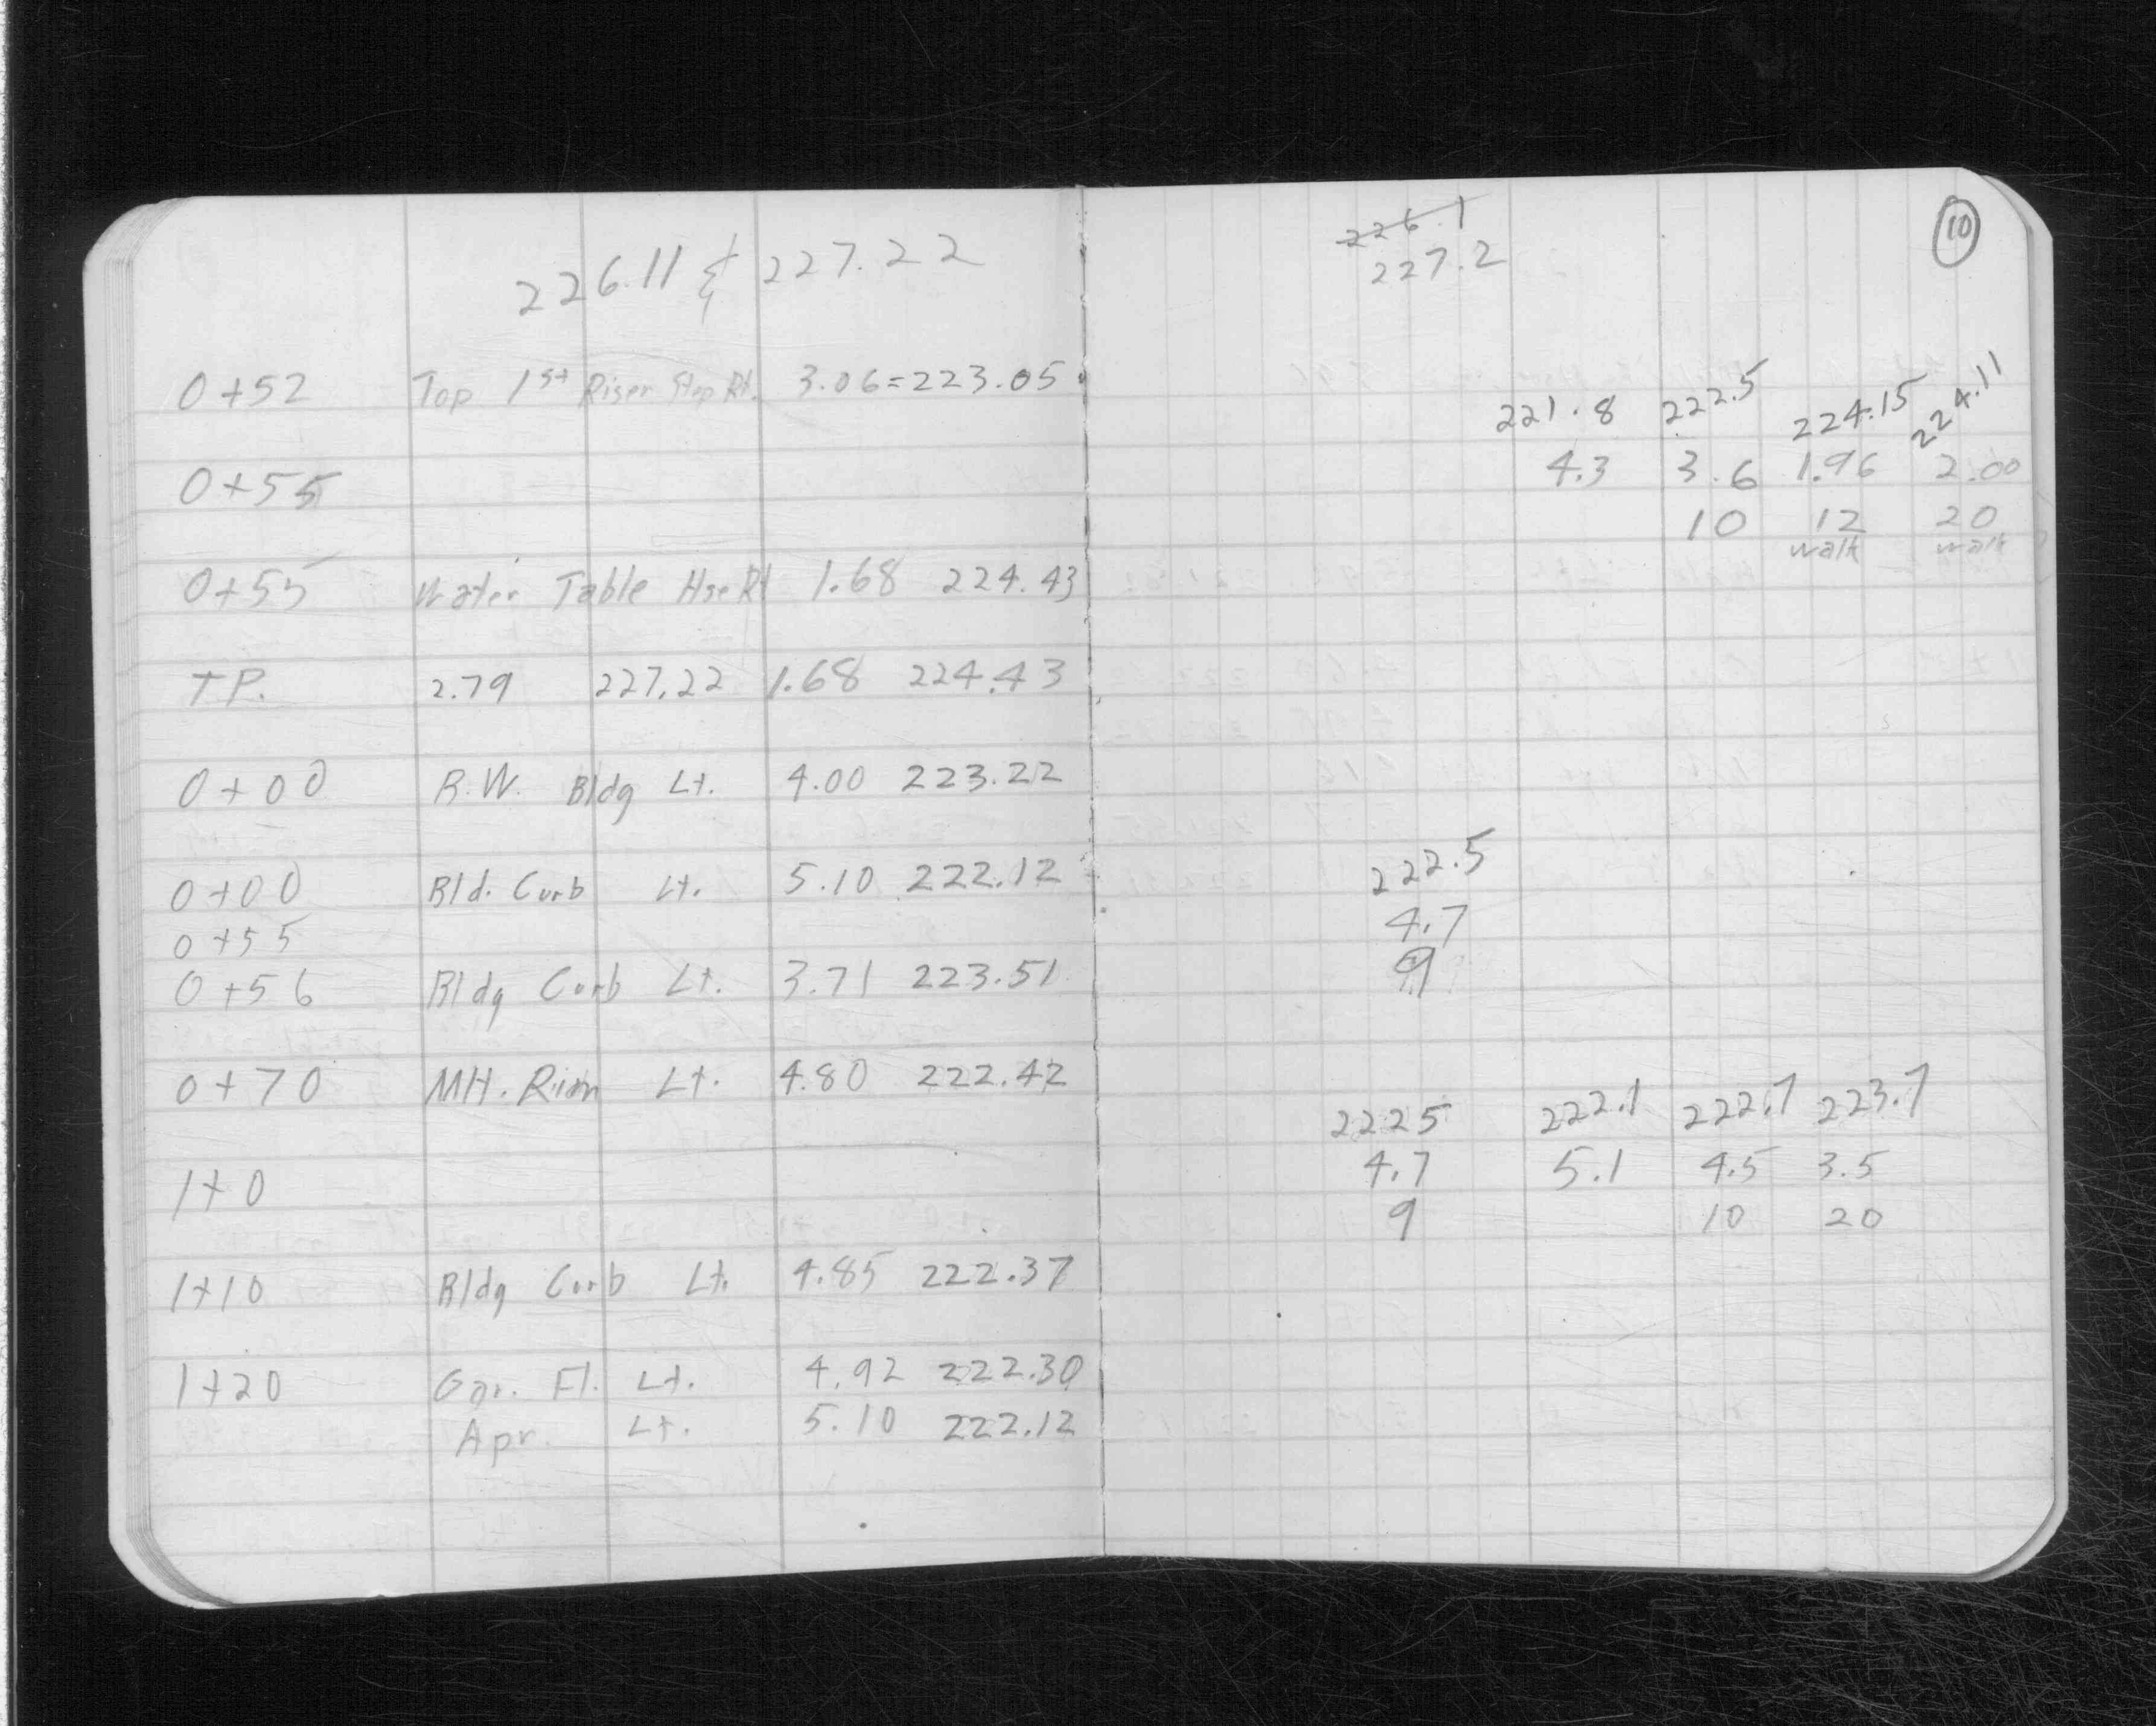 226.11 & 227.22
0+52 Top 1st Riser Step Rt. 3.06=223.05
0+55
0+55 Water Table Hse Rt 1.68 224.43
T.P. 2.79 227.22 1.68 224.43
0+00 B.W. Bldg Lt. 4.00 223.22
0+00 Bld. Curb Lt. 5.10 222.12
0+55
0+56 Bldg Curb Lt. 3.71 223.51
0+70 MH. Rim Lt. 4.80 222.42
1+0
1+10 Bldg Curb Lt. 4.85 222.37
1+20 Gar. Fl. Lt. 4.92 222.30
Apr. Lt. 5.10 222.12
10
226.1
227.2
221.8 222.5 224.15 224.11
4.3 3.6 1.96 2.00
10 12 20
walk walk
222.5
4.7
9
2225 222.1 222.7 223.7
4.7 5.1 4.5 3.5
9 10 20